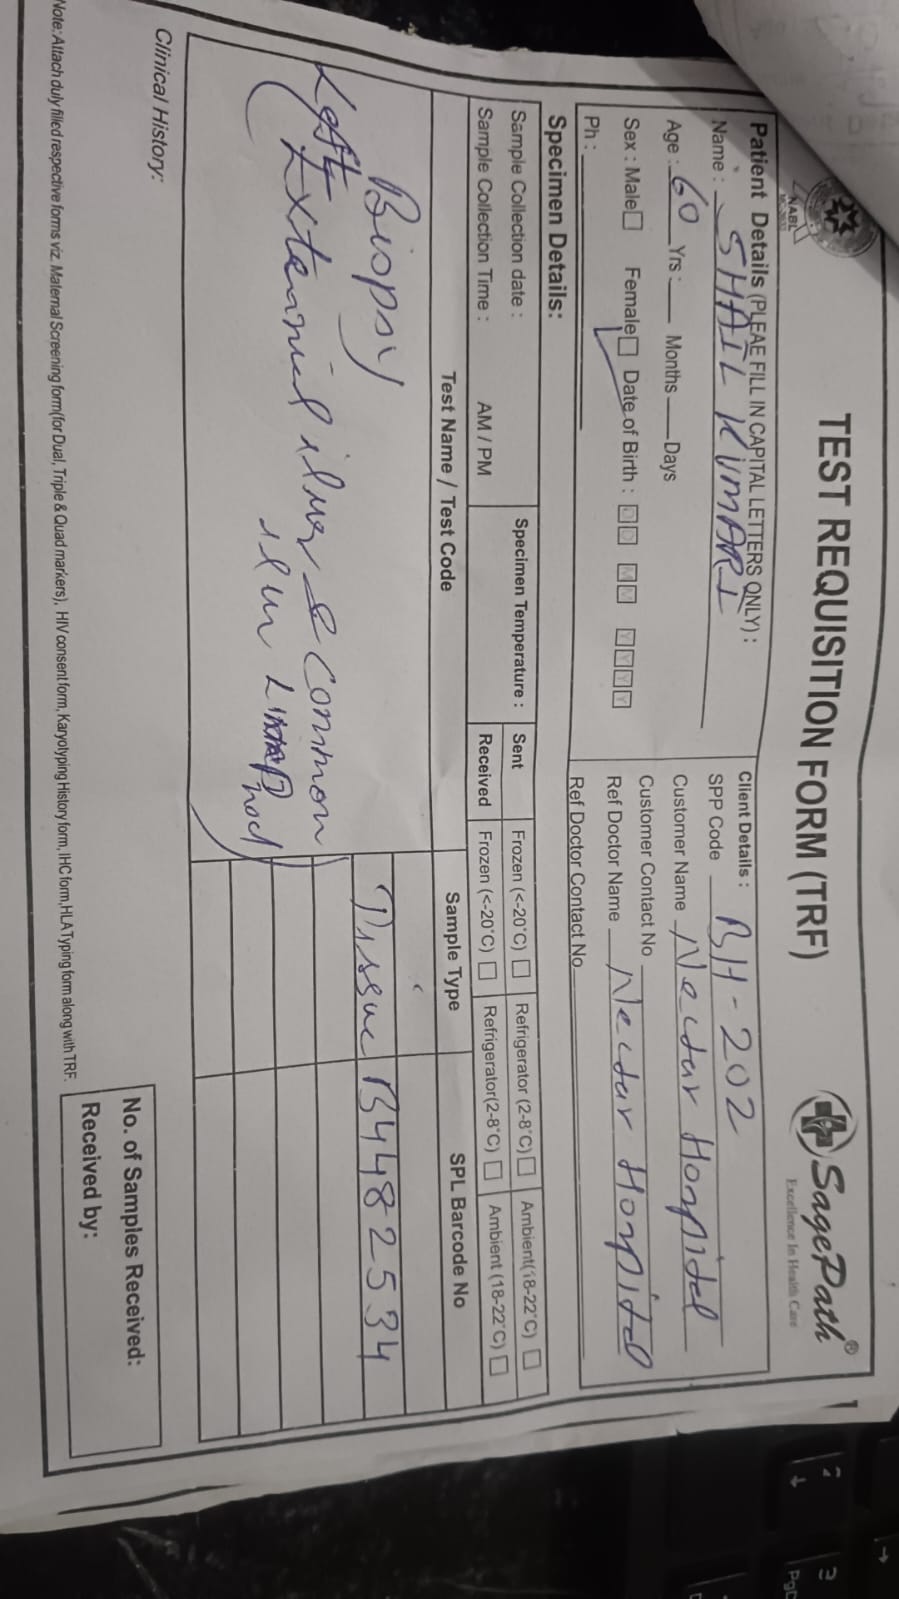 TEST REQUISITION FORM (TRF)
SagePath®
Excellence In Health Care
NABL
Patient Details (PLEAE FILL IN CAPITAL LETTERS ONLY) :
Name : SHAIL KUMARI
Age : 60 Yrs : Months Days
Sex : Male Female Date of Birth : D D M M Y Y Y Y
Ph :
Client Details :
SPP Code BH-202
Customer Name Nectar Hospital
Customer Contact No
Ref Doctor Name Nectar Hospital
Ref Doctor Contact No
Specimen Details:
Sample Collection date :
Sample Collection Time : AM / PM
Specimen Temperature :
Sent Frozen (<-20°C) Refrigerator (2-8°C) Ambient(18-22°C)
Received Frozen (<-20°C) Refrigerator(2-8°C) Ambient (18-22°C)
Test Name / Test Code Sample Type SPL Barcode No
Biopsy Tissue B4482534
Left
( External & common
)
Clinical History:
No. of Samples Received:
Received by:
Note: Attach duly filled respective forms viz. Maternal Screening form(for Dual, Triple & Quad markers), HIV consent form, Karyotyping History form, IHC form,HLA Typing form along with TRF.
2
3
PgD